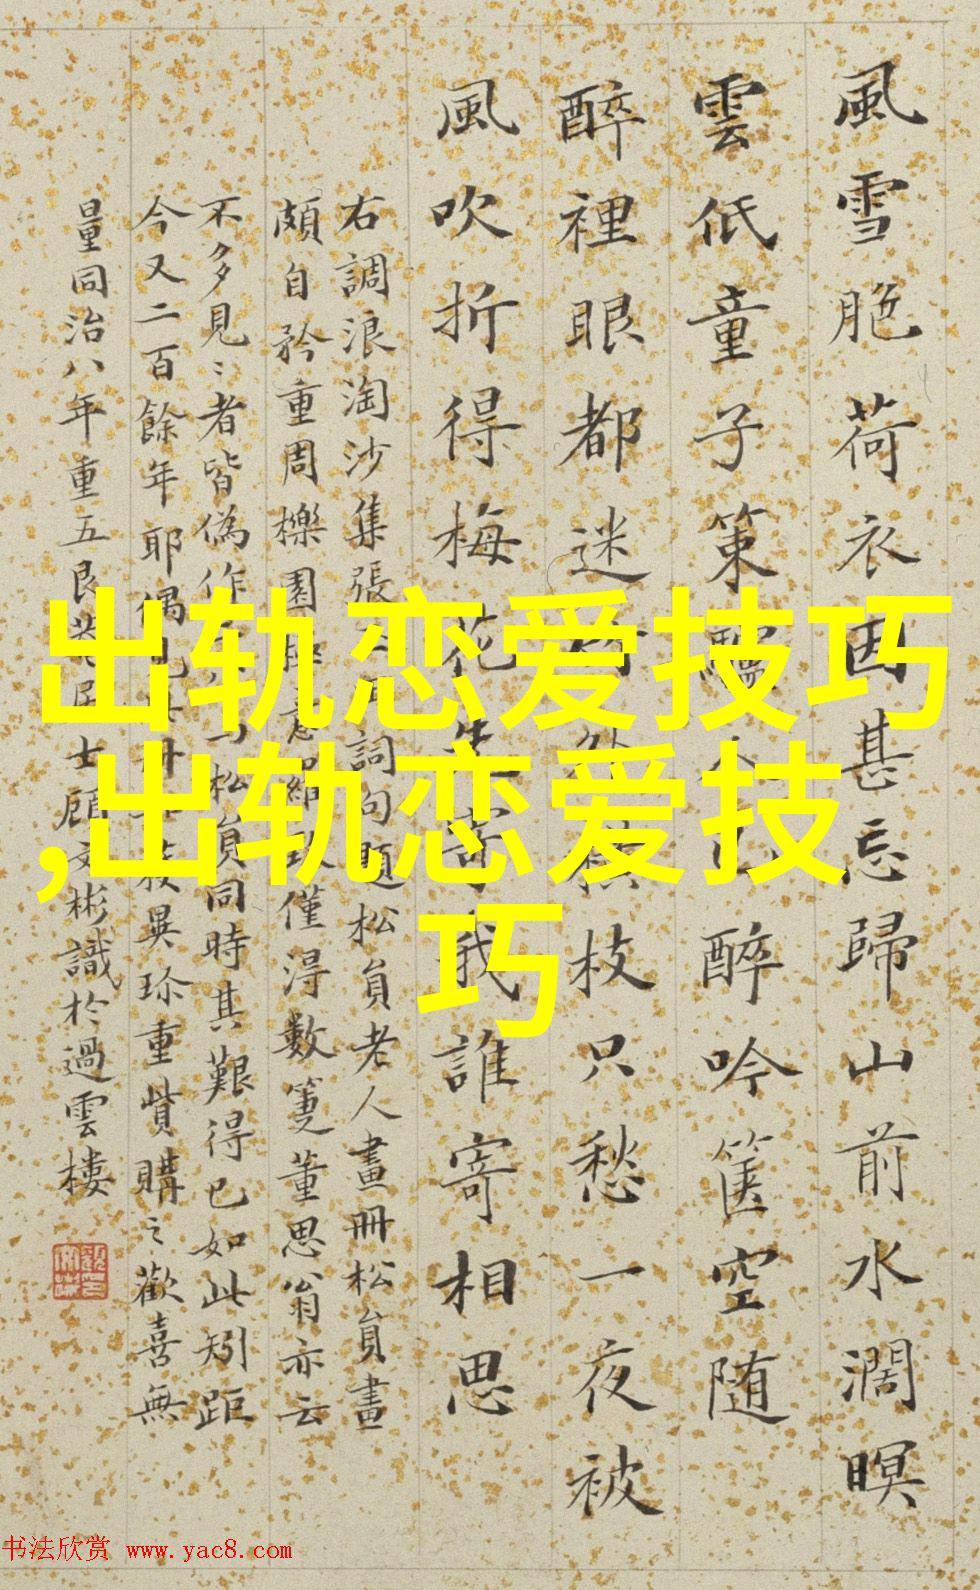 風雪脃荷衣因甚忘歸山前水濶暝
雲低童子策驢醉吟篋空随
醉裡眼都迷外横枝只愁一夜被
風吹折得梅花寄我誰寄相思
右調浪淘沙集張詞句題松員老人畫冊松員畫
頗自矜重周櫟園僅得數箑董思翁亦云
不多見〻者皆偽作松員同時其艱得已如此矧距
今又二百餘年耶偶異珍重貲購之歡喜無
量同治八年重五艮菴居士顧文彬識於過雲樓
出轨恋爱技巧
,出轨恋爱技
巧
书法欣赏 www.yac8.com